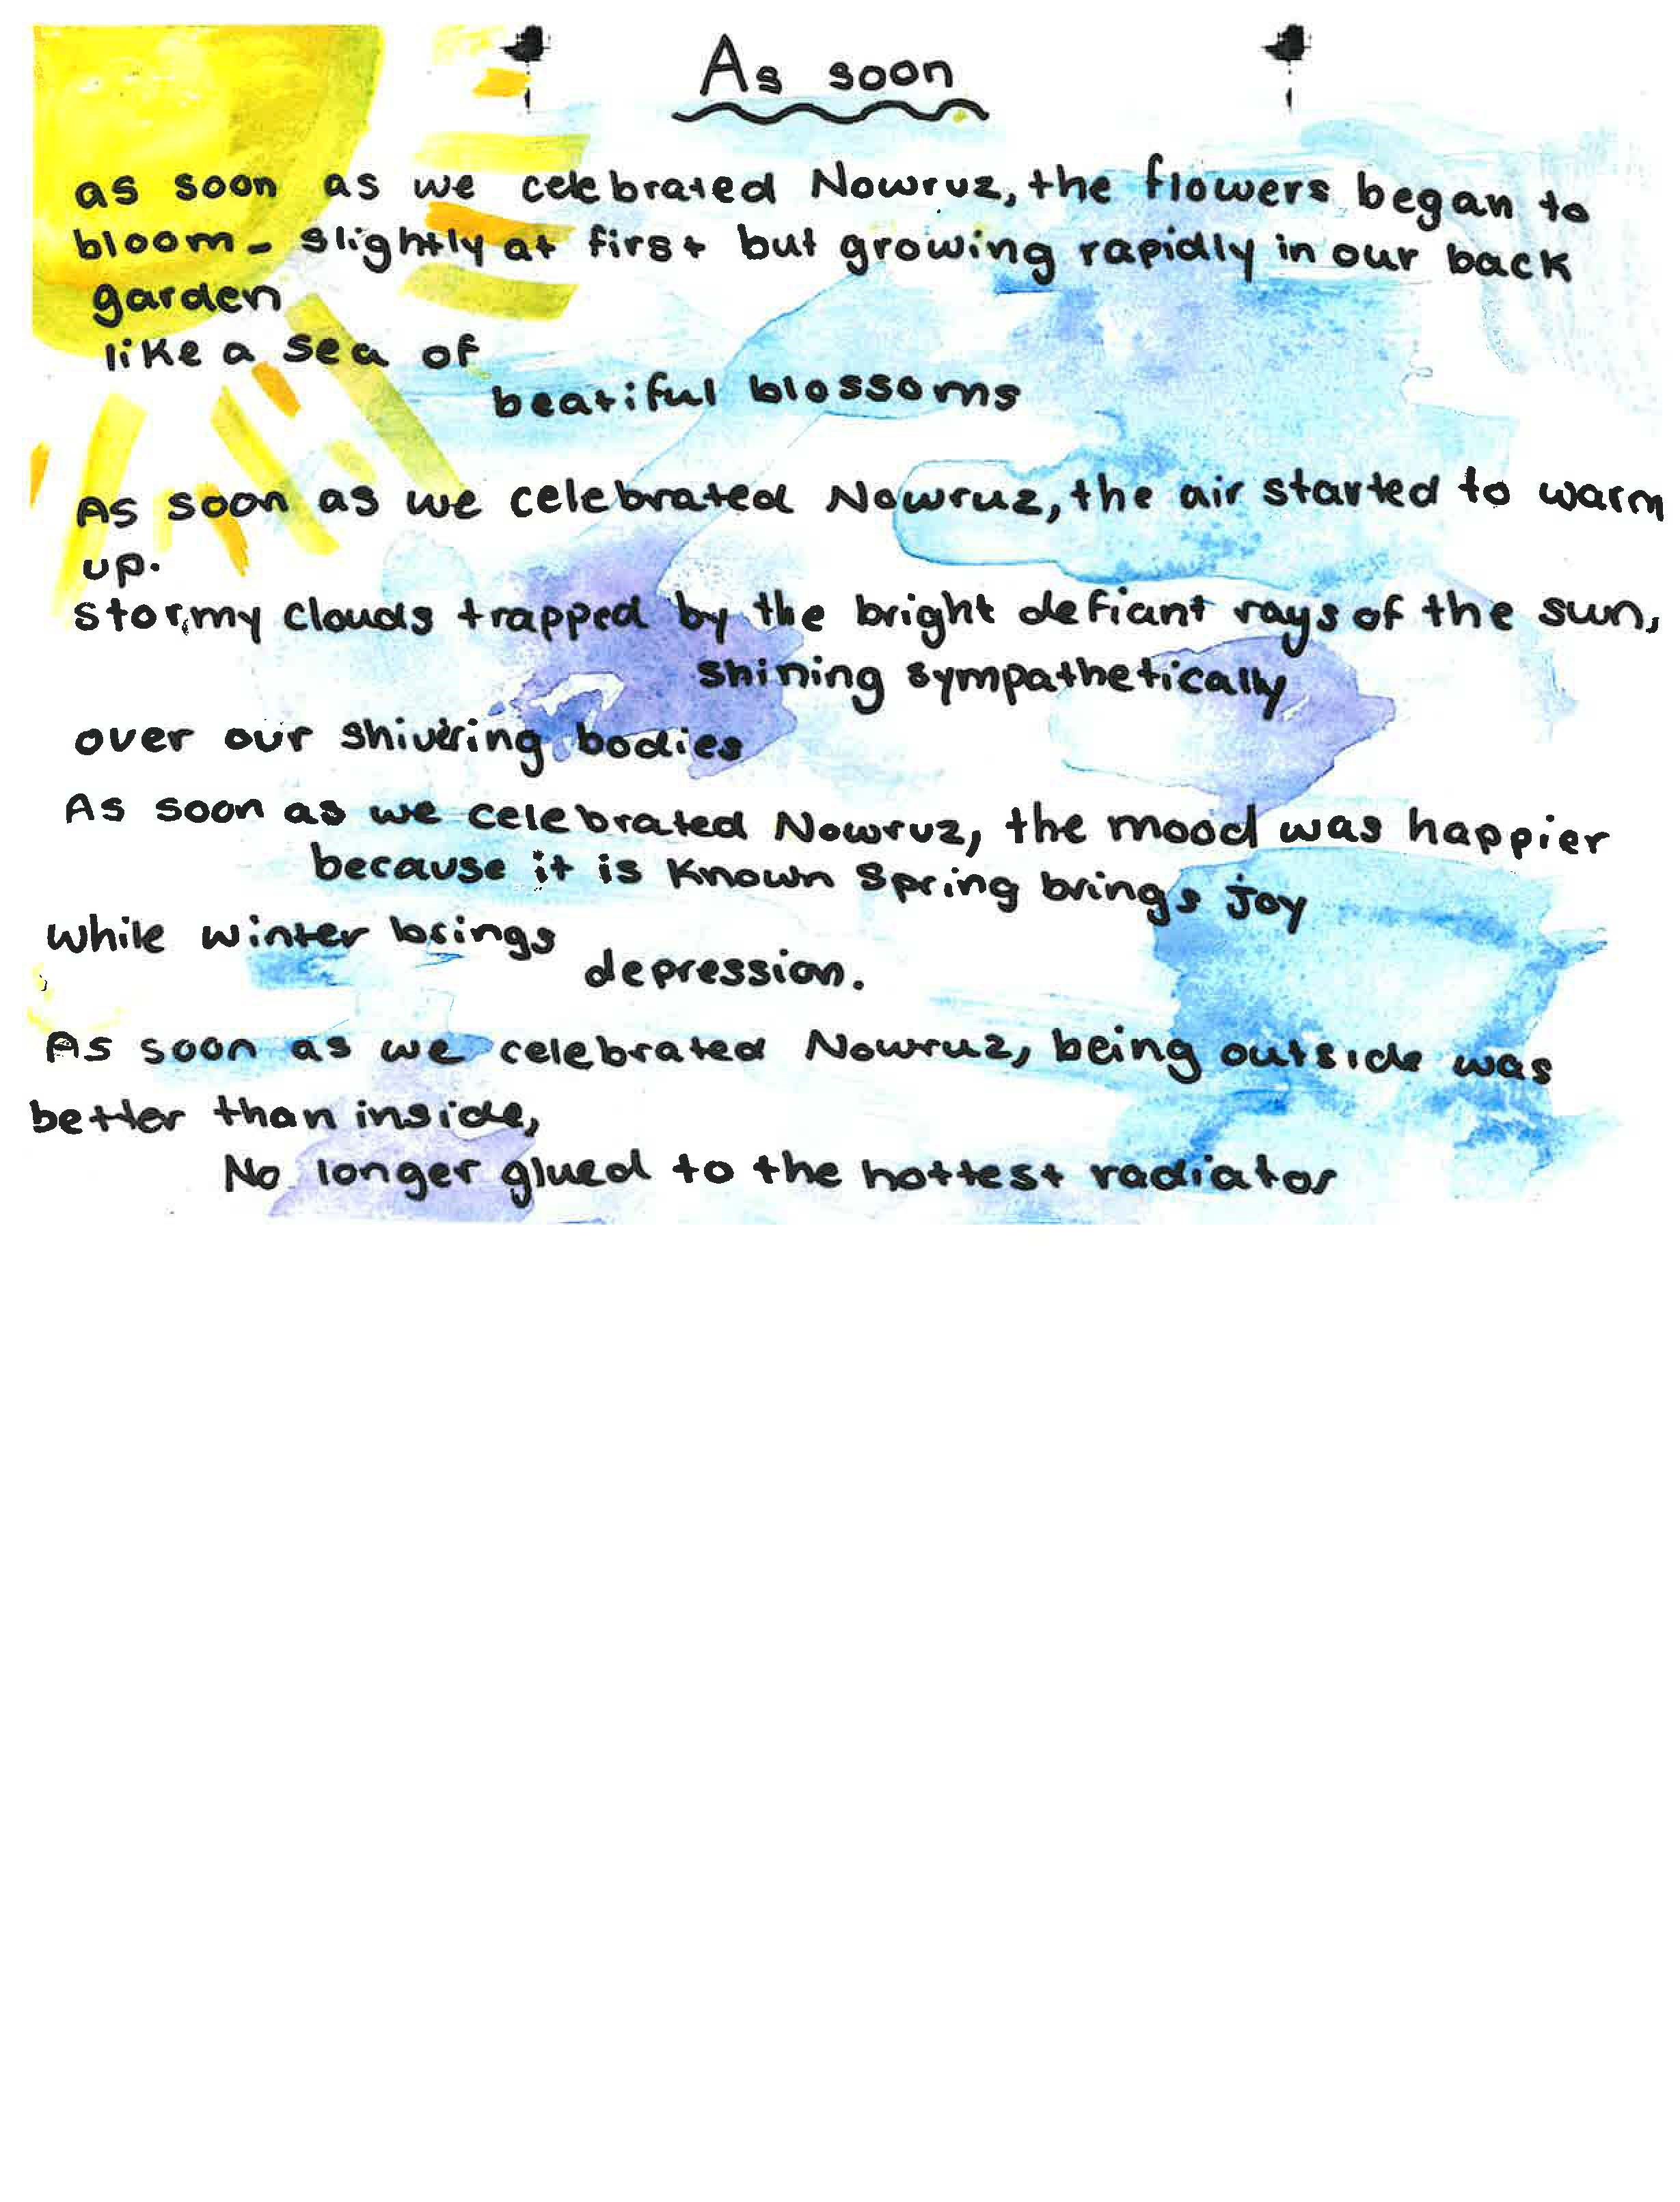 As soon
as soon as we celebrated Nowruz, the flowers began to
bloom - slightly at first but growing rapidly in our back
garden
like a sea of
beatiful blossoms
As soon as we celebrated Nowruz, the air started to warm
up.
stormy clouds trapped by the bright defiant rays of the sun,
shining sympathetically
over our shivering bodies
As soon as we celebrated Nowruz, the mood was happier
because it is known Spring brings joy
while winter brings
depression.
As soon as we celebrated Nowruz, being outside was
better than inside,
No longer glued to the hottest radiator